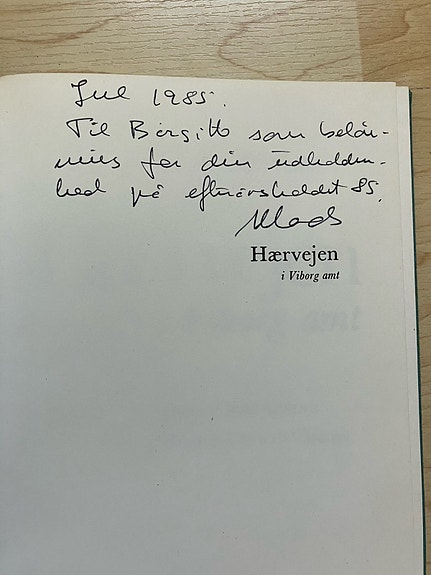 Jul 1985.
Til Birgitte som beløn-
ning for din udholden-
hed på efterårsholdet 85.
Mads
Hærvejen
i Viborg amt